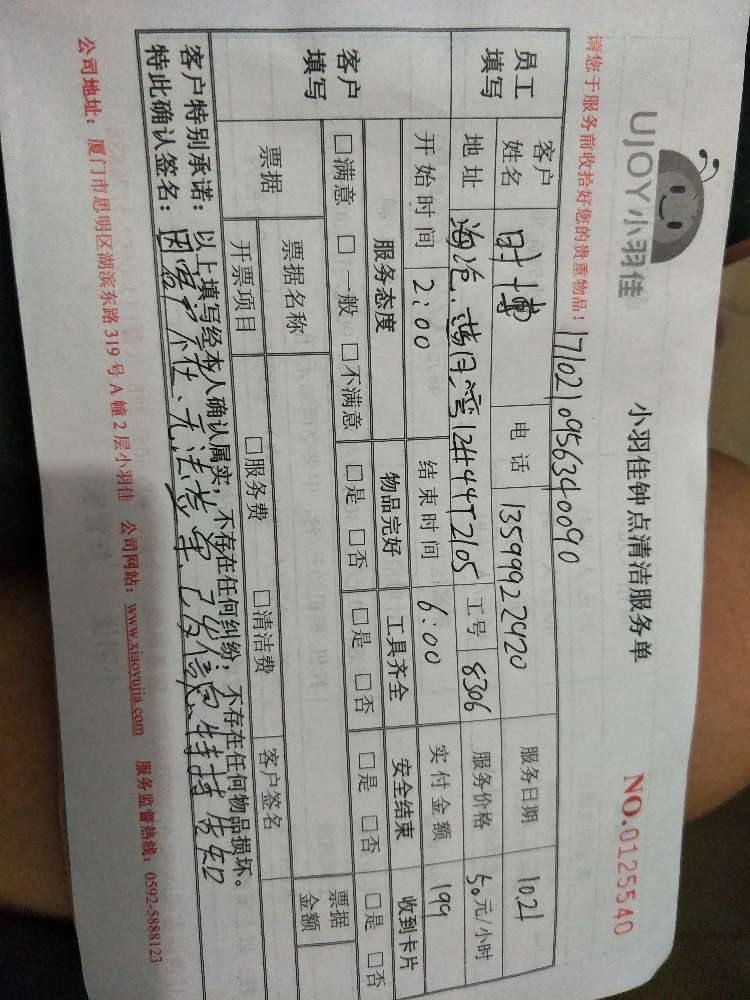 UJOY小羽佳
小羽佳钟点清洁服务单
NO.0125540
请您于服务前收拾好您的贵重物品！
1710210956340090
员工填写
客户姓名
时博
电话
13599922920
服务日期
10.21
地址
海沧.蓝月湾12#44T2105
工号
8306
服务价格
50元/小时
开始时间
2:00
结束时间
6:00
实付金额
199
客户填写
服务态度
物品完好
工具齐全
安全结束
收到卡片
□满意 □一般 □不满意
□是 □否
□是 □否
□是 □否
□是 □否
票据
票据名称
票据金额
开票项目
□服务费
□清洁费
客户签名
客户特别承诺：以上填写经本人确认属实，不存在任何纠纷；不存在任何物品损坏。
特此确认签名：因客户不在、无法签单 已发信息 告知
公司地址：厦门市思明区湖滨东路319号A幢2层小羽佳 公司网站：www.xiaoyujia.com 服务监督热线：0592-5888123